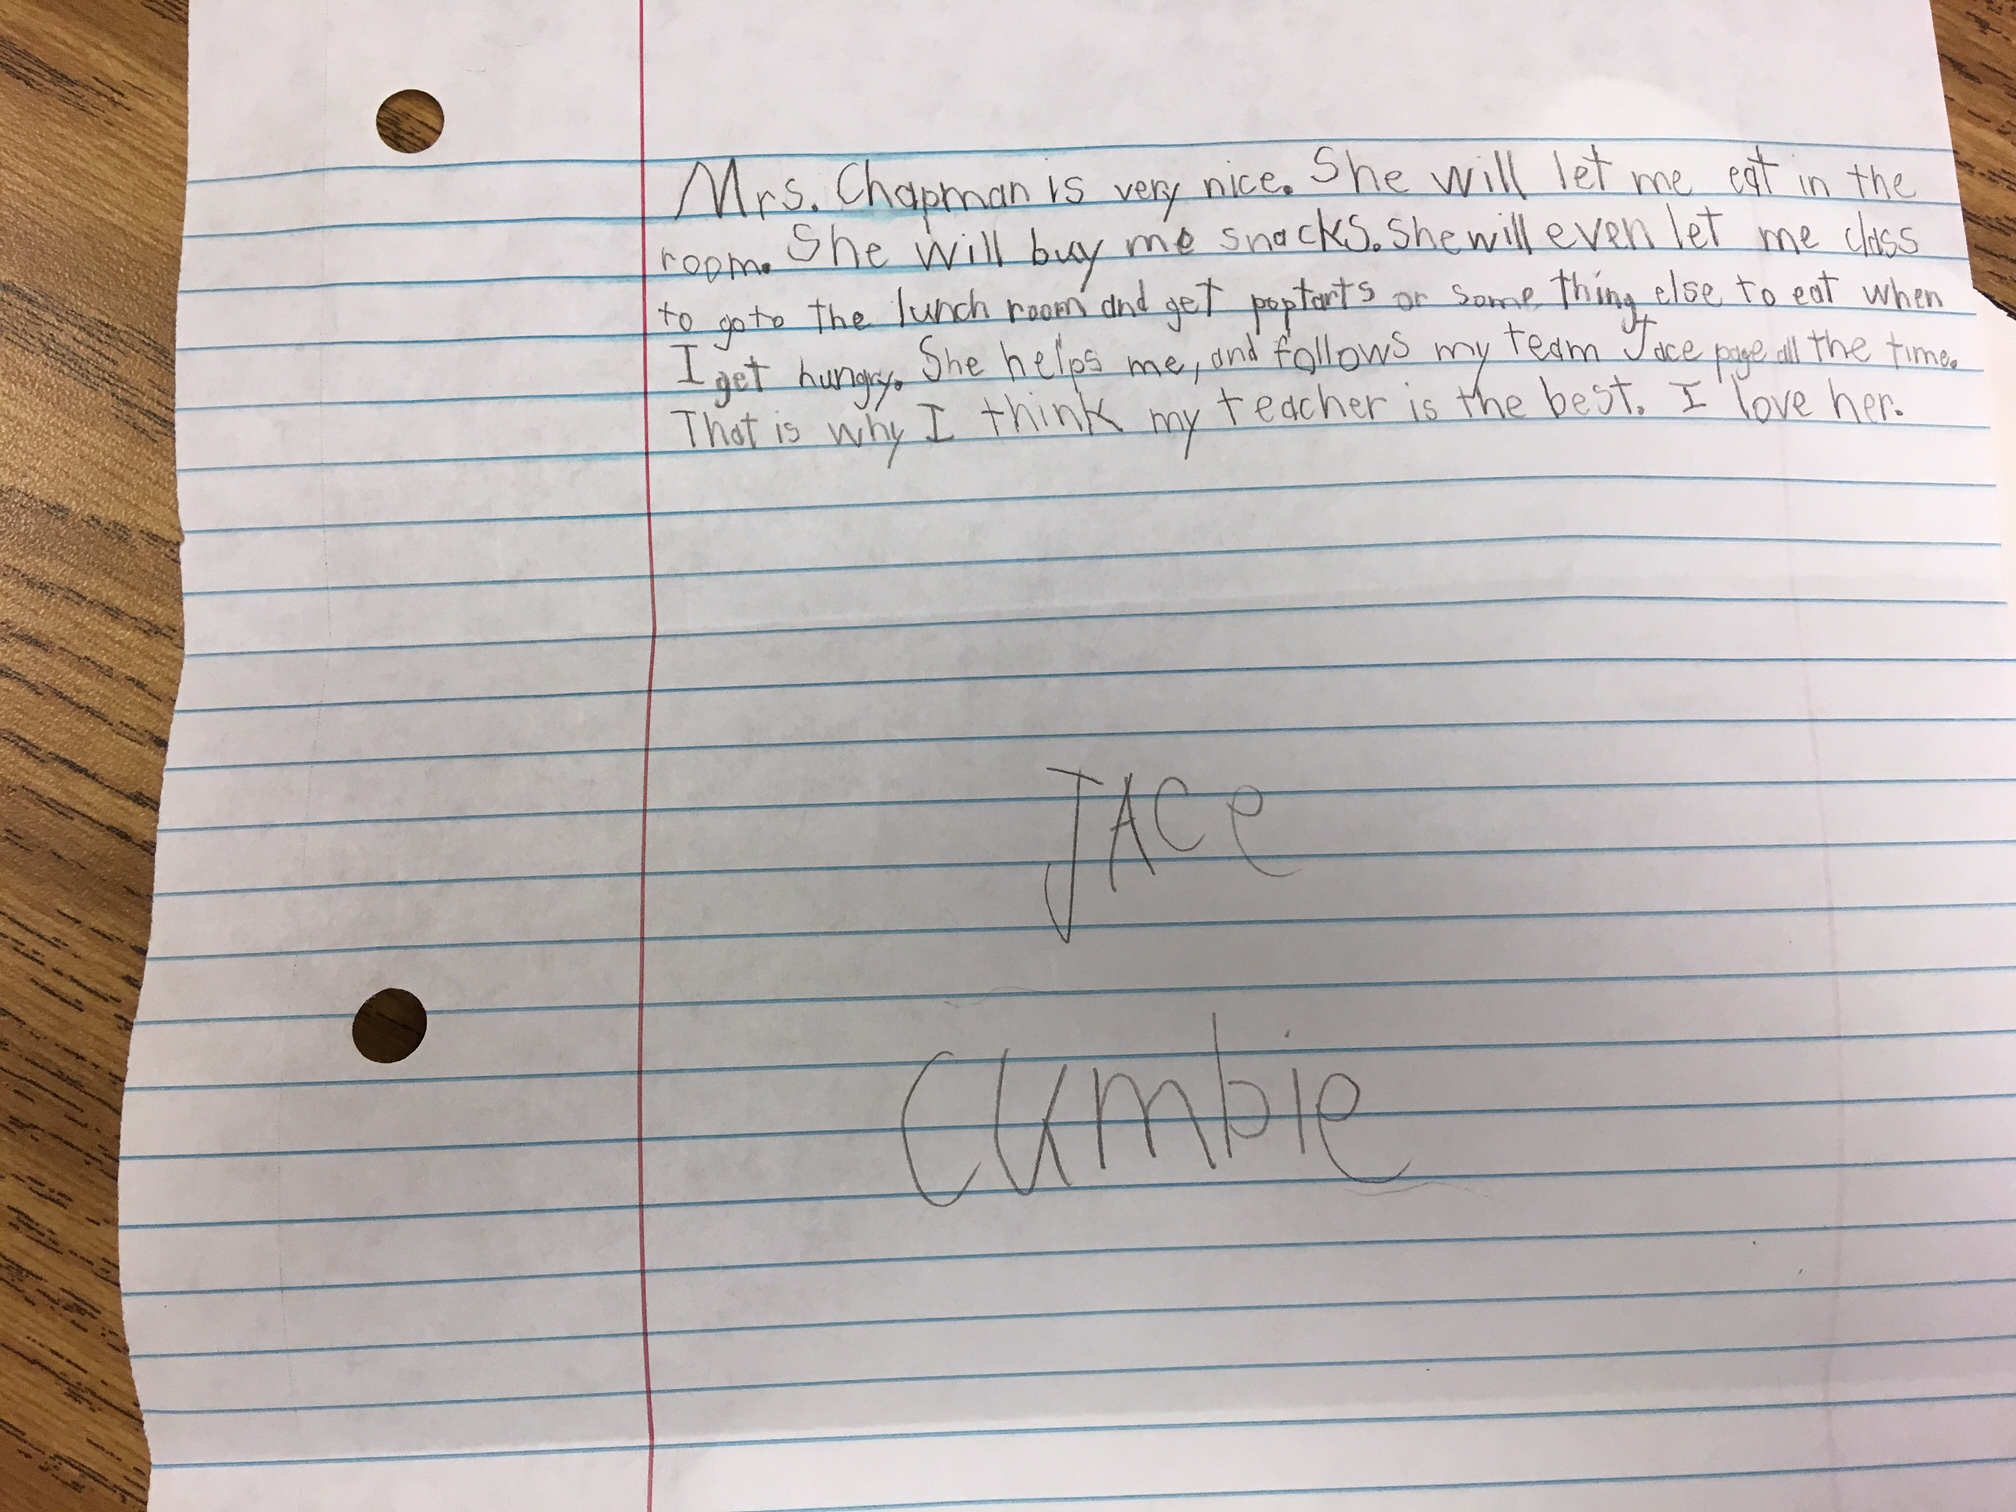 Mrs. Chapman is very nice. She will let me eat in the
room. She will buy me snacks. She will even let me class
to go to the lunch room and get poptarts or some thing else to eat when
I get hungry. She helps me, and follows my team Jace page all the time.
That is why I think my teacher is the best. I love her.
JACe
Cumbie